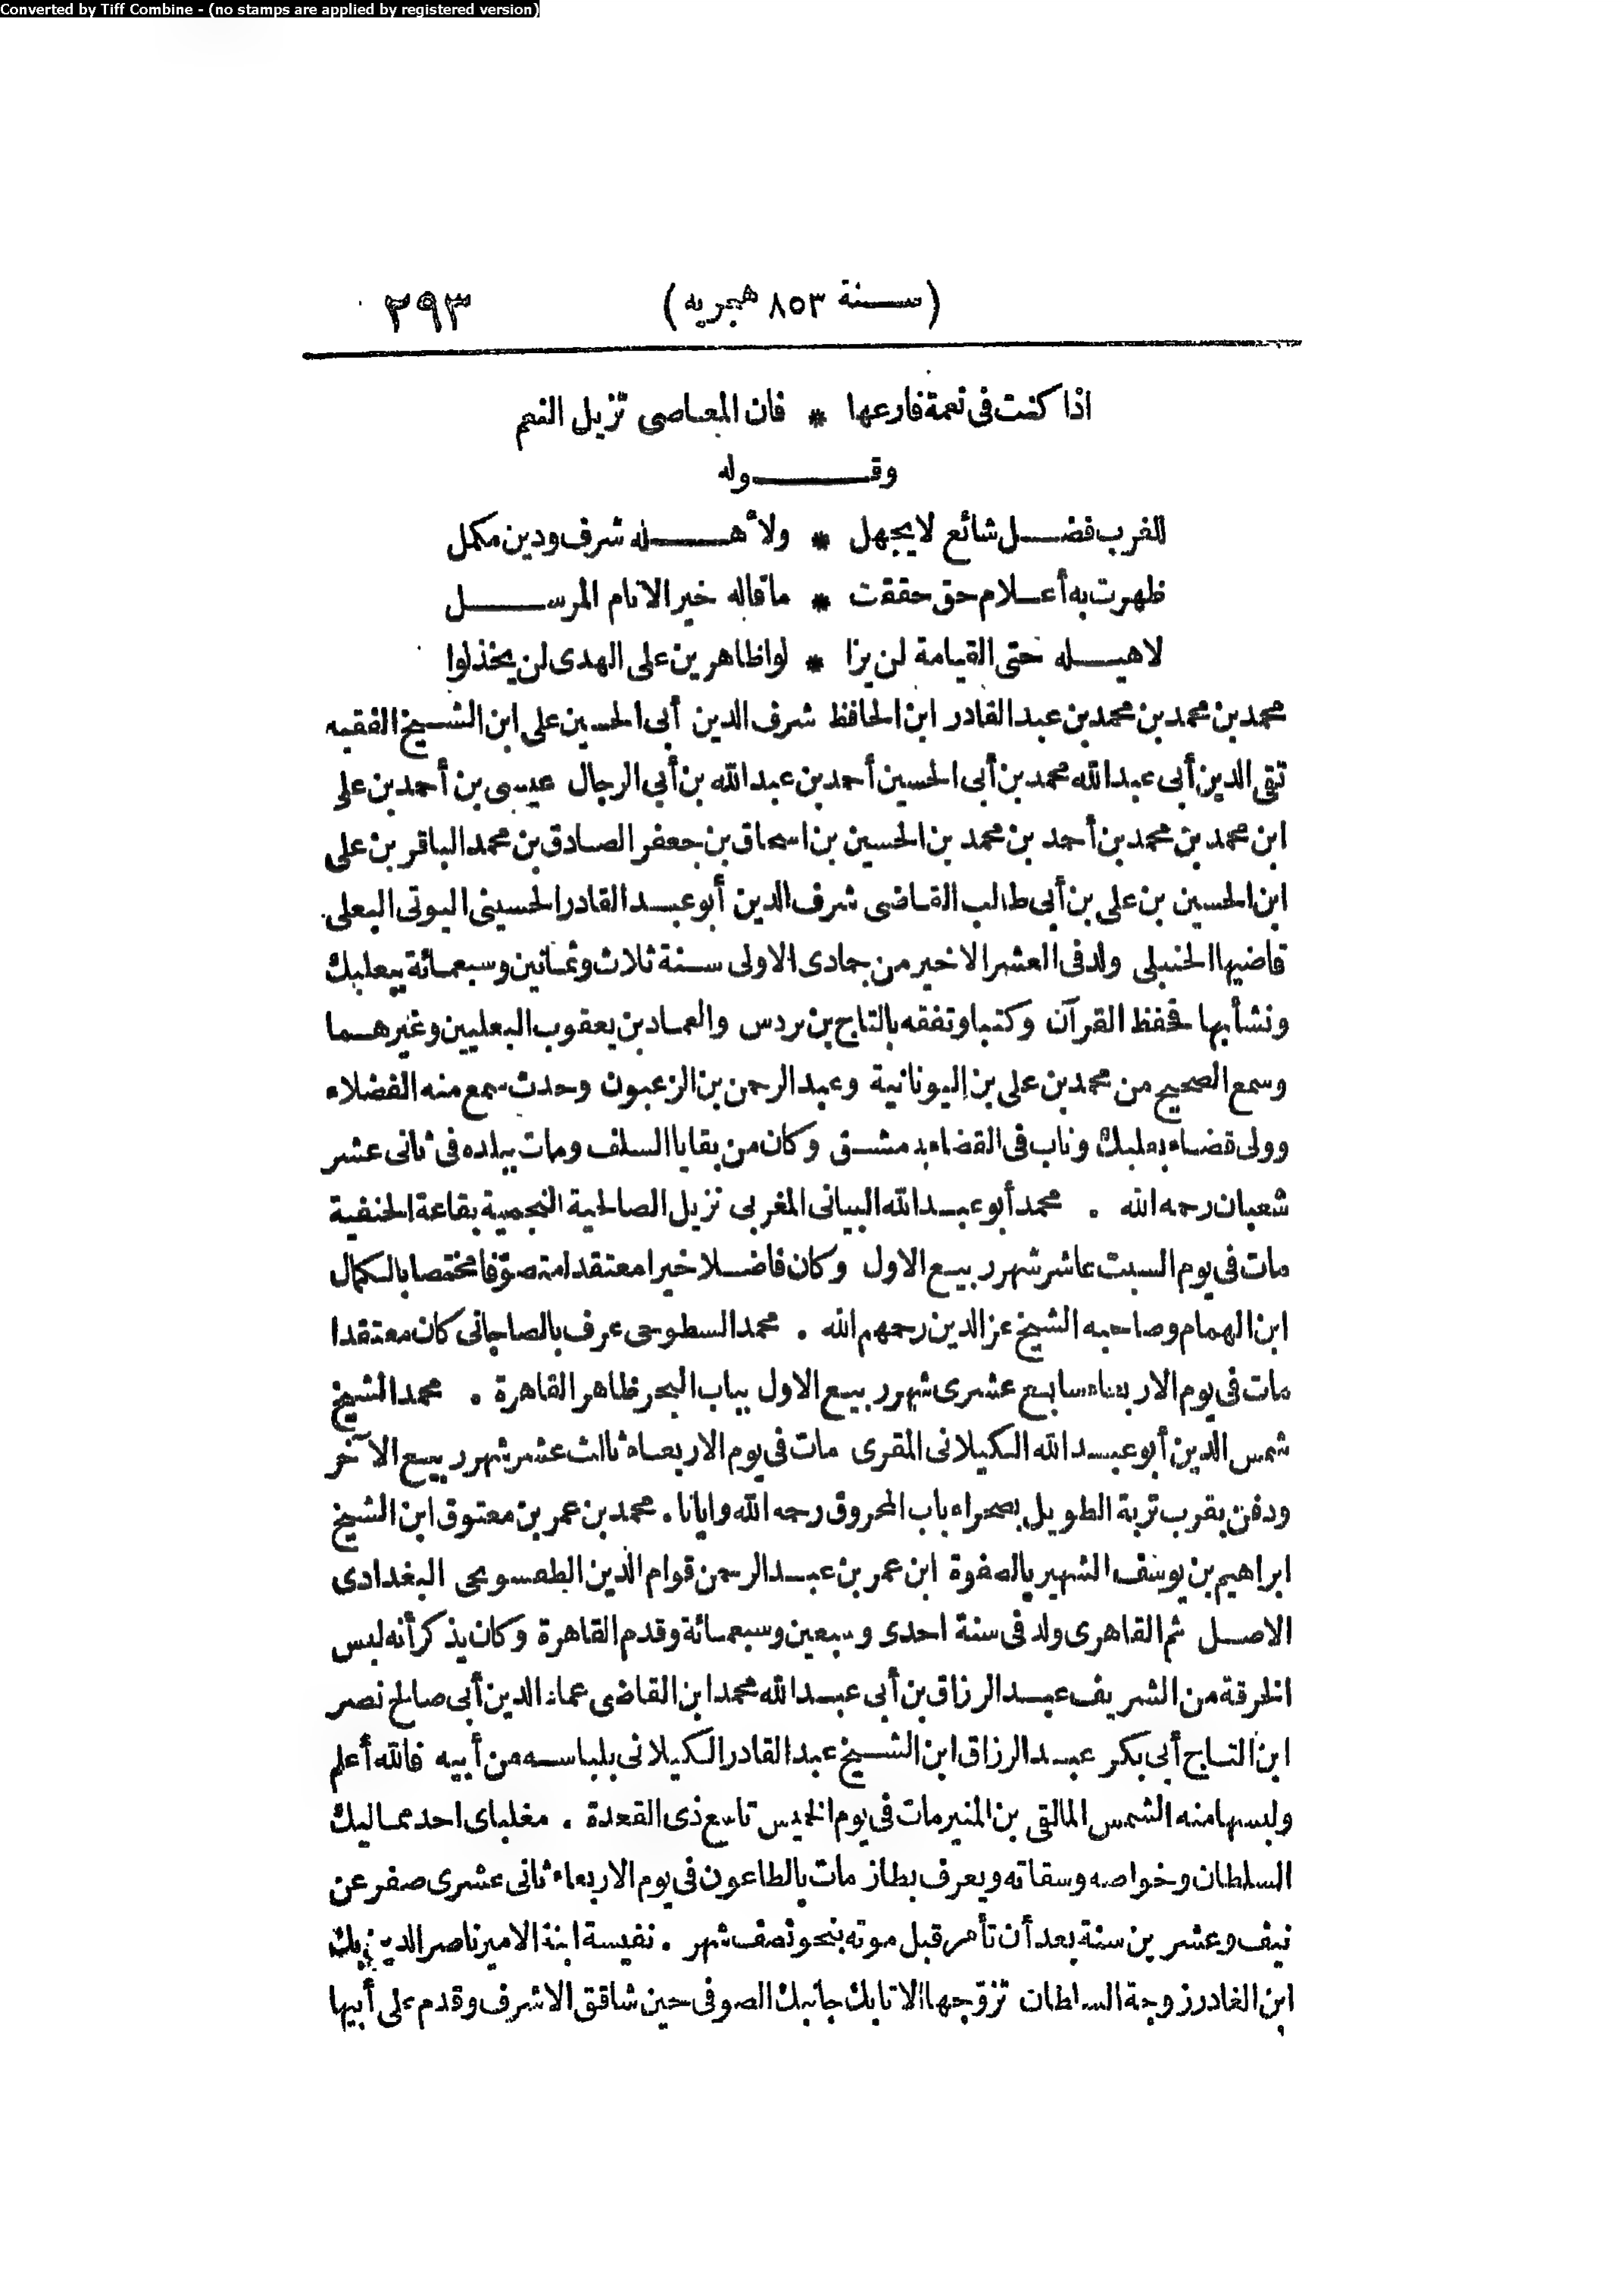 Converted by Tiff Combine - (no stamps are applied by registered version)
(سنة ٨٥٣ هجريه) ٢٩٣
اذا كنت فى نعمة فارعها * فان المعاصى تزيل النعم
وقوله
للغرب فضل شائع لا يجهل * ولأهله شرف ودين مكمل
ظهرت به أعلام حق حققت * ما قاله خير الانام المرسل
لاهيله حتى القيامة لن يزا * لوا ظاهرين على الهدى لن يخذلوا
محمد بن محمد بن محمد بن عبد القادر ابن الحافظ شرف الدين أبى الحسين على ابن الشيخ الفقيه
تقى الدين أبى عبد الله محمد بن أبى الحسين أحمد بن عبد الله بن أبي الرجال عيسى بن أحمد بن على
ابن محمد بن محمد بن أحمد بن محمد بن الحسين بن اسحاق بن جعفر الصادق بن محمد الباقر بن على
ابن الحسين بن على بن أبى طالب القاضى شرف الدين أبو عبد القادر الحسينى اليونى البعلى
قاضيها الحنبلى ولد فى العشر الاخير من جمادى الاولى سنة ثلاث وثمانين وسبعمائة ببعلبك
ونشأ بها فحفظ القرآن وكتبا وتفقه بالتاج بن بردس والعماد بن يعقوب البعليين وغيرهما
وسمع الصحيح من محمد بن على بن اليونانية وعبد الرحمن بن الزعبون وحدث سمع منه الفضلاء
وولى قضاء بعلبك وناب فى القضاء بدمشق وكان من بقايا السلف ومات ببلده فى ثانى عشر
شعبان رحمه الله . محمد أبو عبد الله البيانى المغربى نزيل الصالحية النجمية بقاعة الحنفية
مات فى يوم السبت عاشر شهر ربيع الاول وكان فاضلا خيرا معتقدا متصوّفا مختصا بالكمال
ابن الهمام وصاحبه الشيخ عز الدين رحمهم الله . محمد السطوحى عرف بالصاجانى كان معتقدا
مات فى يوم الاربعاء سابع عشرى شهر ربيع الاول بباب البحر ظاهر القاهرة . محمد الشيخ
شمس الدين أبو عبد الله الكيلانى المقرى مات فى يوم الاربعاء ثالث عشر شهر ربيع الآخر
ودفن بقرب تربة الطويل بصحراء باب المحروق رحمه الله وايانا . محمد بن عمر بن معتوق ابن الشيخ
ابراهيم بن يوسف الشهير بالصفوة ابن عمر بن عبد الرحمن قوام الدين الطفسونجى البغدادى
الاصل ثم القاهرى ولد فى سنة احدى وسبعين وسبعمائة وقدم القاهرة وكان يذكر أنه لبس
الخرقة من الشريف عبد الرزاق بن أبى عبد الله محمد ابن القاضى عماد الدين أبى صالح نصر
ابن التاج أبى بكر عبد الرزاق ابن الشيخ عبد القادر الكيلانى بلباسه من أبيه فالله أعلم
ولبسها منه الشمس المالقى بن المنير مات فى يوم الخميس تاسع ذى القعدة . مغلباى احد مماليك
السلطان وخواصه وسقاته ويعرف بطاز مات بالطاعون فى يوم الاربعاء ثانى عشرى صفر عن
نيف وعشرين سنة بعد أن تأمر قبل موته بنحو نصف شهر . نفيسة ابنة الامير ناصر الدين بك
ابن الغادر زوجة السلطان تزوّجها الاتابك جانبك الصوفى حين شاقق الاشرف وقدم على أبيها